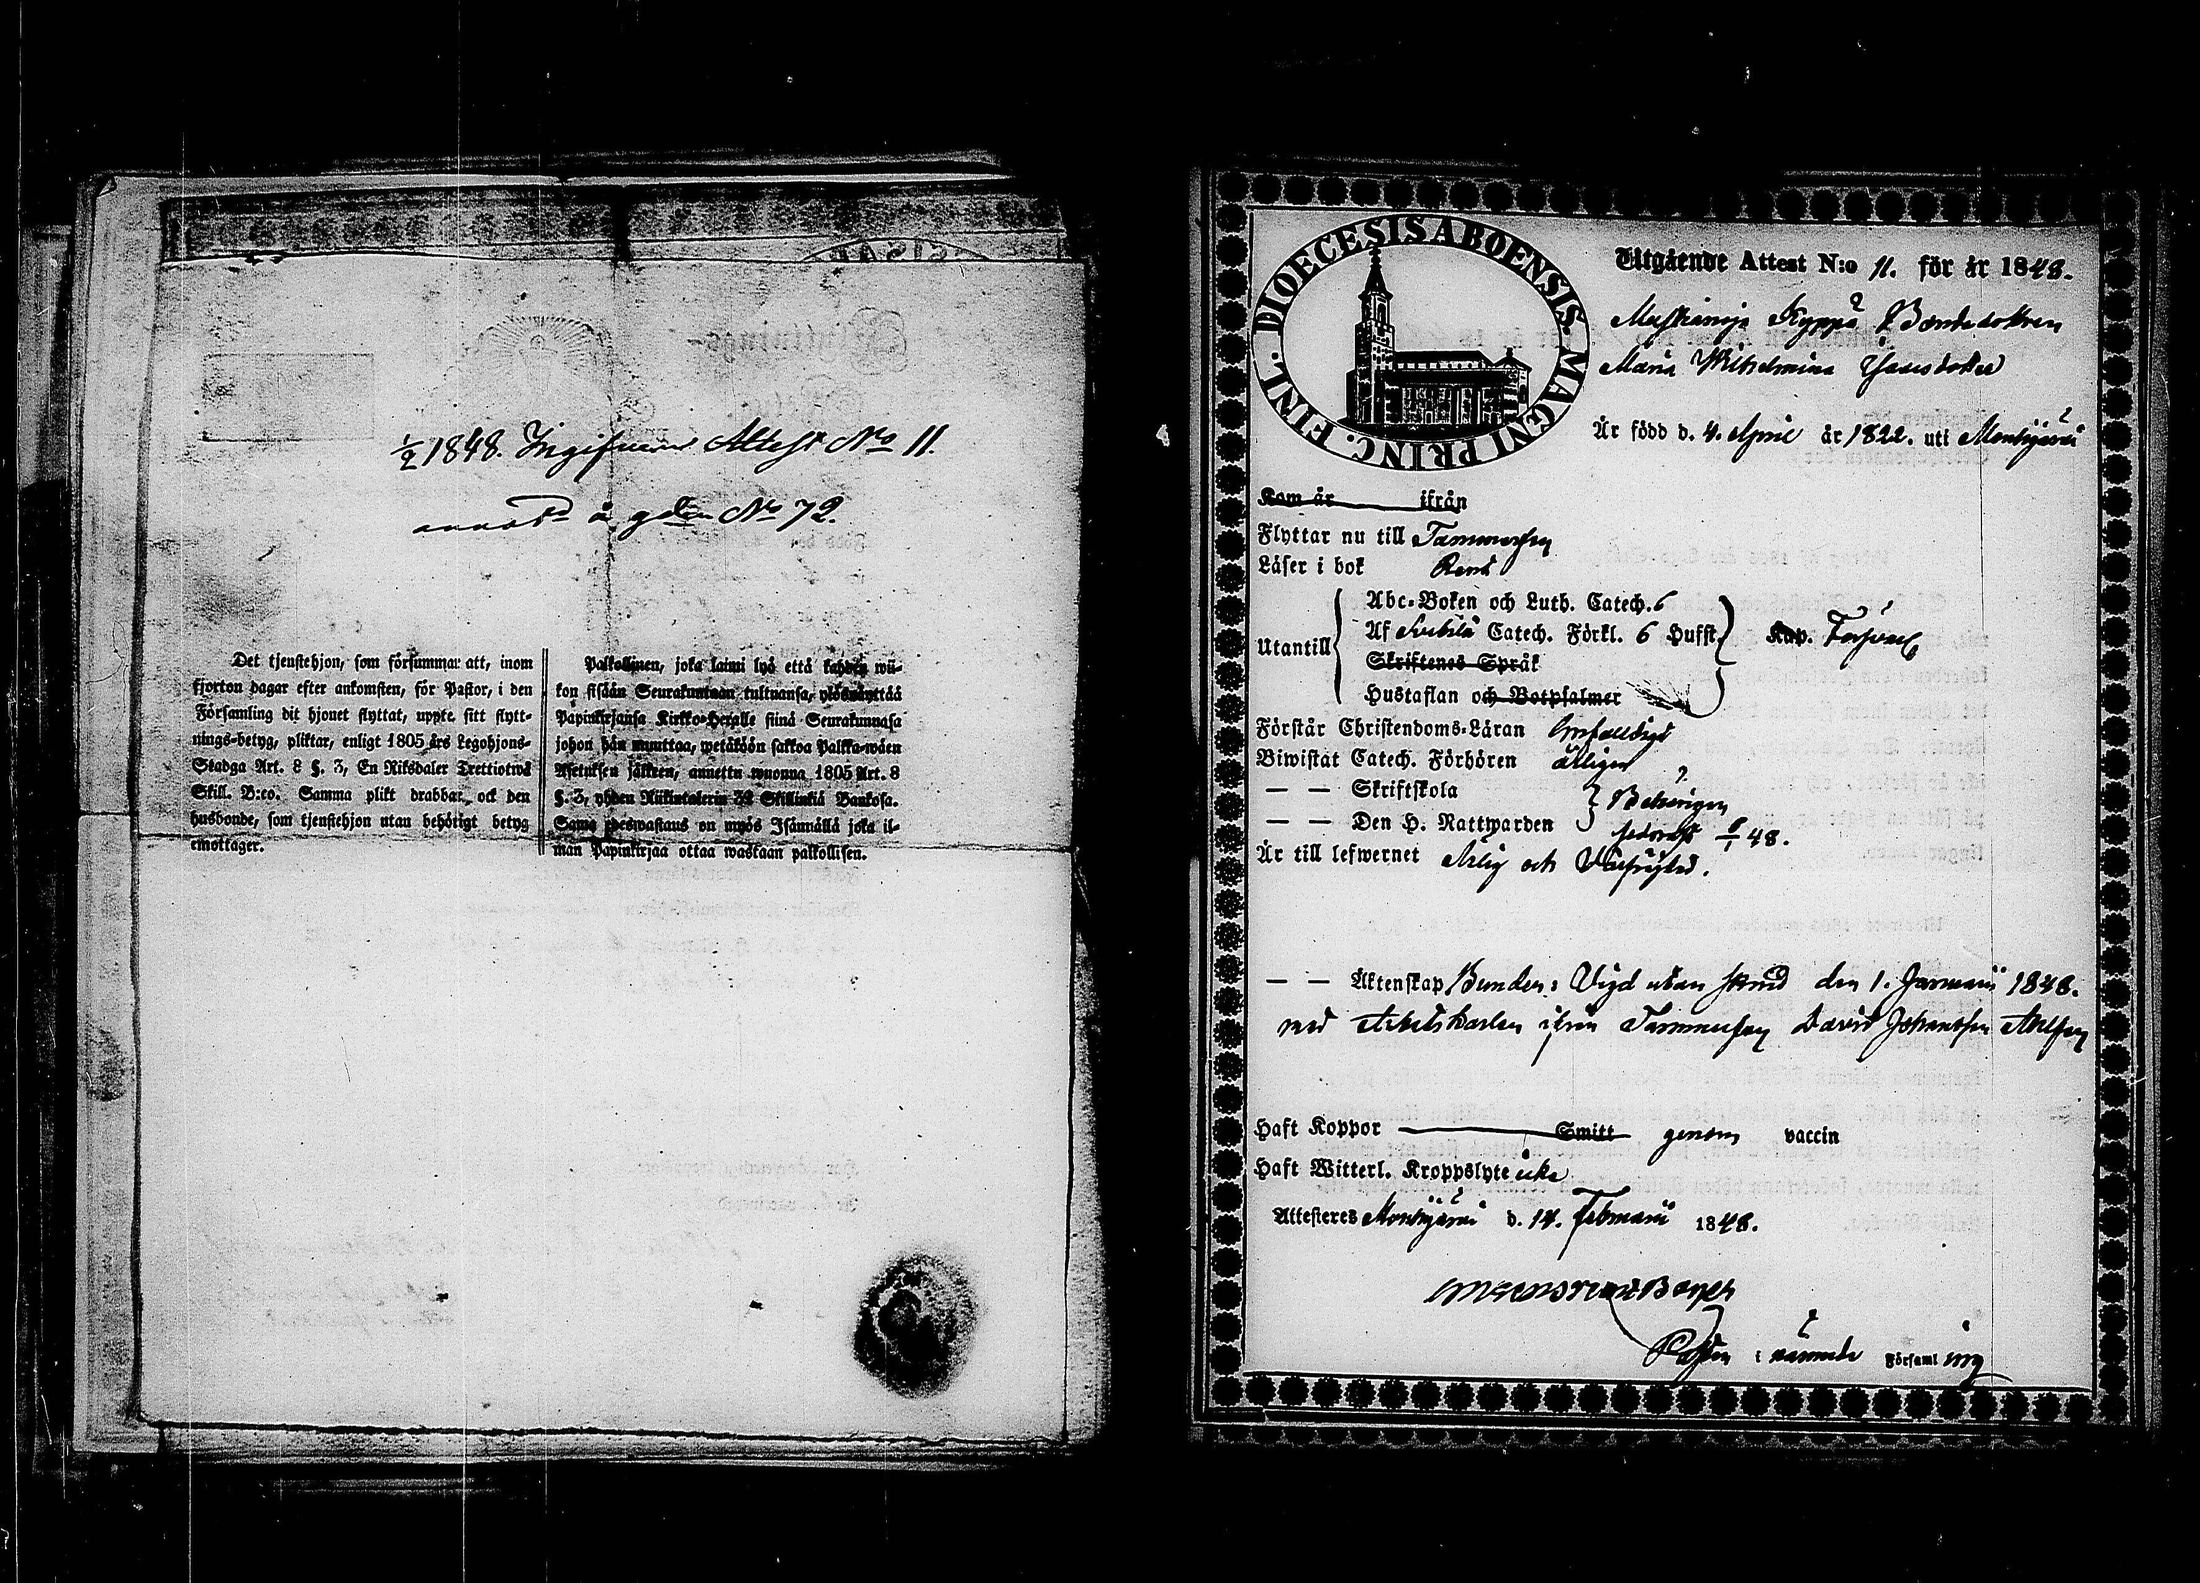 1/2 1848. Ingifven Attest No 11.
å gden No 72.
Det tjenstehjon, som försummar att, inom
fjorton dagar efter ankomsten, för Pastor, i den
Församling dit hjonet flyttat, uppte sitt flytt-
nings-betyg, pliktar, enligt 1805 års Legohjons-
Stadga Art. 8 §. 3, En Riksdaler Trettiotwå
Skill. B:co. Samma plikt drabbar ock den
husbonde, som tjenstehjon utan behörigt betyg
emottager.
Palkollinen, joka laimi lyö että kahden wii-
kon sisään Seurakuntaan tultuansa, ylösnäyttää
Päpinkirjansa Kirkko-Heralle siinä Seurakunnasa
johon hän muuttaa, wetäköön sakkoa Palkka-wäen
Asetuksen jälkeen, annettu wuonna 1805 Art. 8
§. 3, yhden Riikintalerin 32 Skillinkiä Bankosa.
Sama edeswastaus on myös Isännällä joka il-
man Päpinkirjaa ottaa wastaan palkollisen.
DIOECESIS ABOENSIS. MAGNI PRINC. FINL.
Utgående Attest N:o 11. för år 1848.
Kyppö Bondedottren
Maria Wilhelmina
Är född d. 4. April år 1822. uti Mouhijärvi
Kom år ifrån
Flyttar nu till Tammerfors
Läser i bok Rent
Utantill
Abc-Boken och Luth. Catech. 6
Af Svebilii Catech. Förkl. 6 Hufst. Kap. Försvarl.
Skriftenes Språk
Hustaflan och Botpsalmer
Förstår Christendoms-Läran Enfaldigt
Biwistat Catech. Förhören årligen
— — Skriftskola
Behörigen
— — Den H. Nattwarden
sednast 6/1 48.
Är till lefwernet Ärlig och Välfrejdad.
— — Äktenskap Bunden: Vigd utan skrud den 1. Januarii 1848.
med Arbetskarlen ifrån Tammerfors David Johansson
Haft Koppor Smitt genom vaccin
Haft Witterl. Kroppslyte icke
Attesteres Mouhijärvi d. 14. Februarii 1848.
Pastor i nämnde Församling